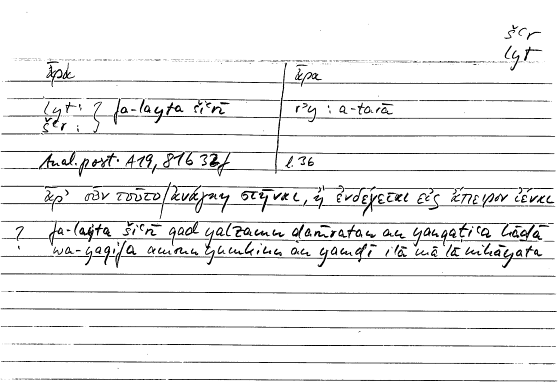 šʿr
lyt
ἆρα
ἆρα
lyt :
šʿr :
fa-layta šiʿrī
rʾy : a-tarā
Anal. post. A19, 81b 32f
l. 36
ἆρ' οὖν τοῦτο ἀνάγκη στῆναι, ἢ ἐνδέχεται εἰς ἄπειρον ἰέναι
? fa-layta šiʿrī qad yalzamu ḍarūratan an yanqaṭiʿa hāḏā
wa-yaqifa am yumkinu an yamḍī ilā mā lā nihāyata